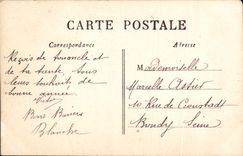 CARTE POSTALE
Correspondance
Adresse
Reçois de ton oncle et
de ta tante, tous
leurs souhaits de
bonne année
Bons Baisers
Blanche
Mademoiselle
Marcelle Astier
10 Rue de Cronstadt
Bondy Seine